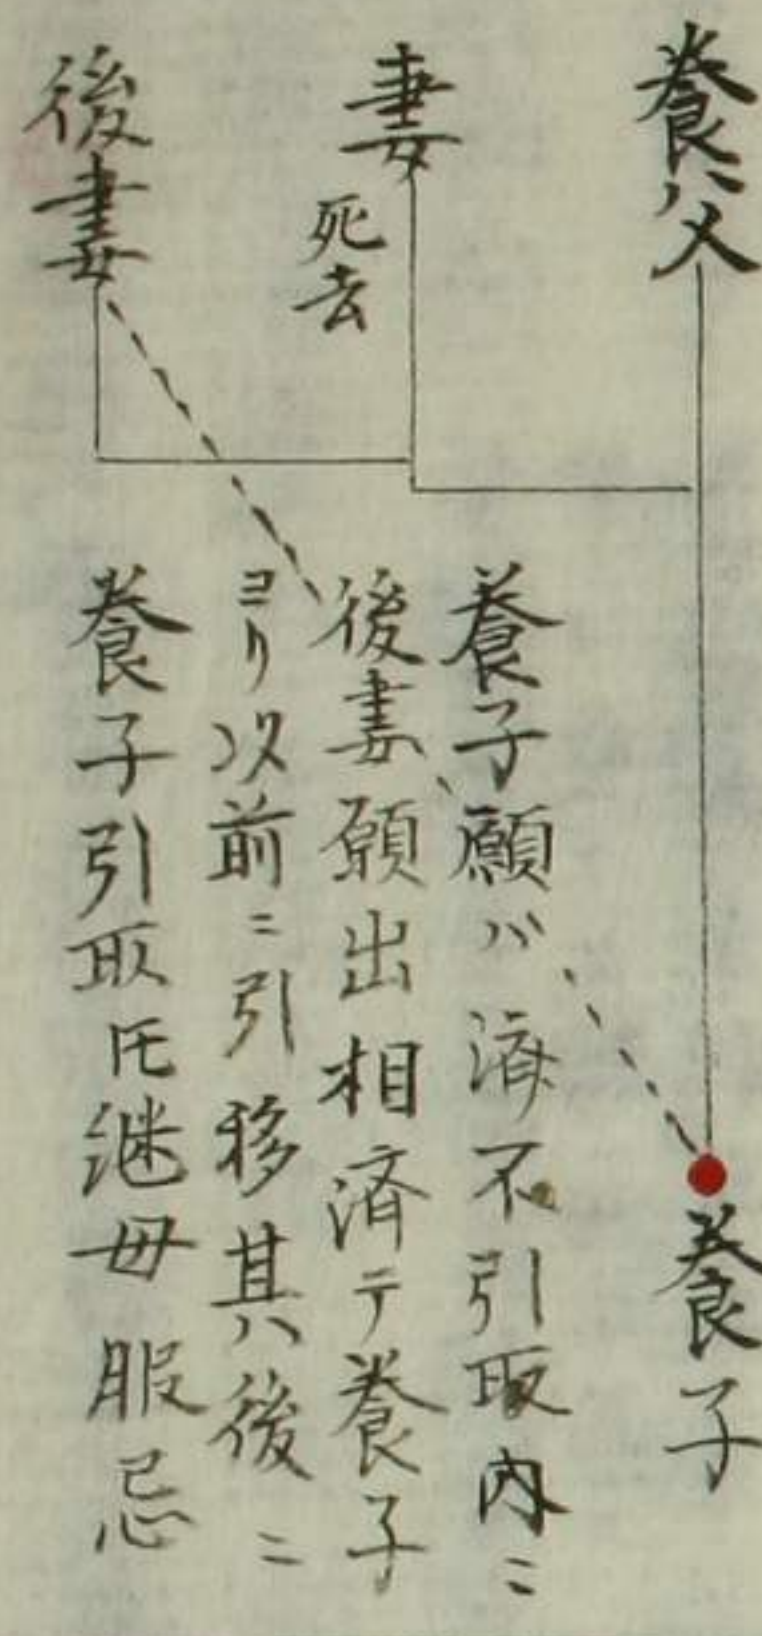 養父
養子
妻
死去
後妻
養子願ハ済不引取内ニ
後妻願出相済テ養子
ヨリ以前ニ引移其後ニ
養子引取𪜈継母服忌